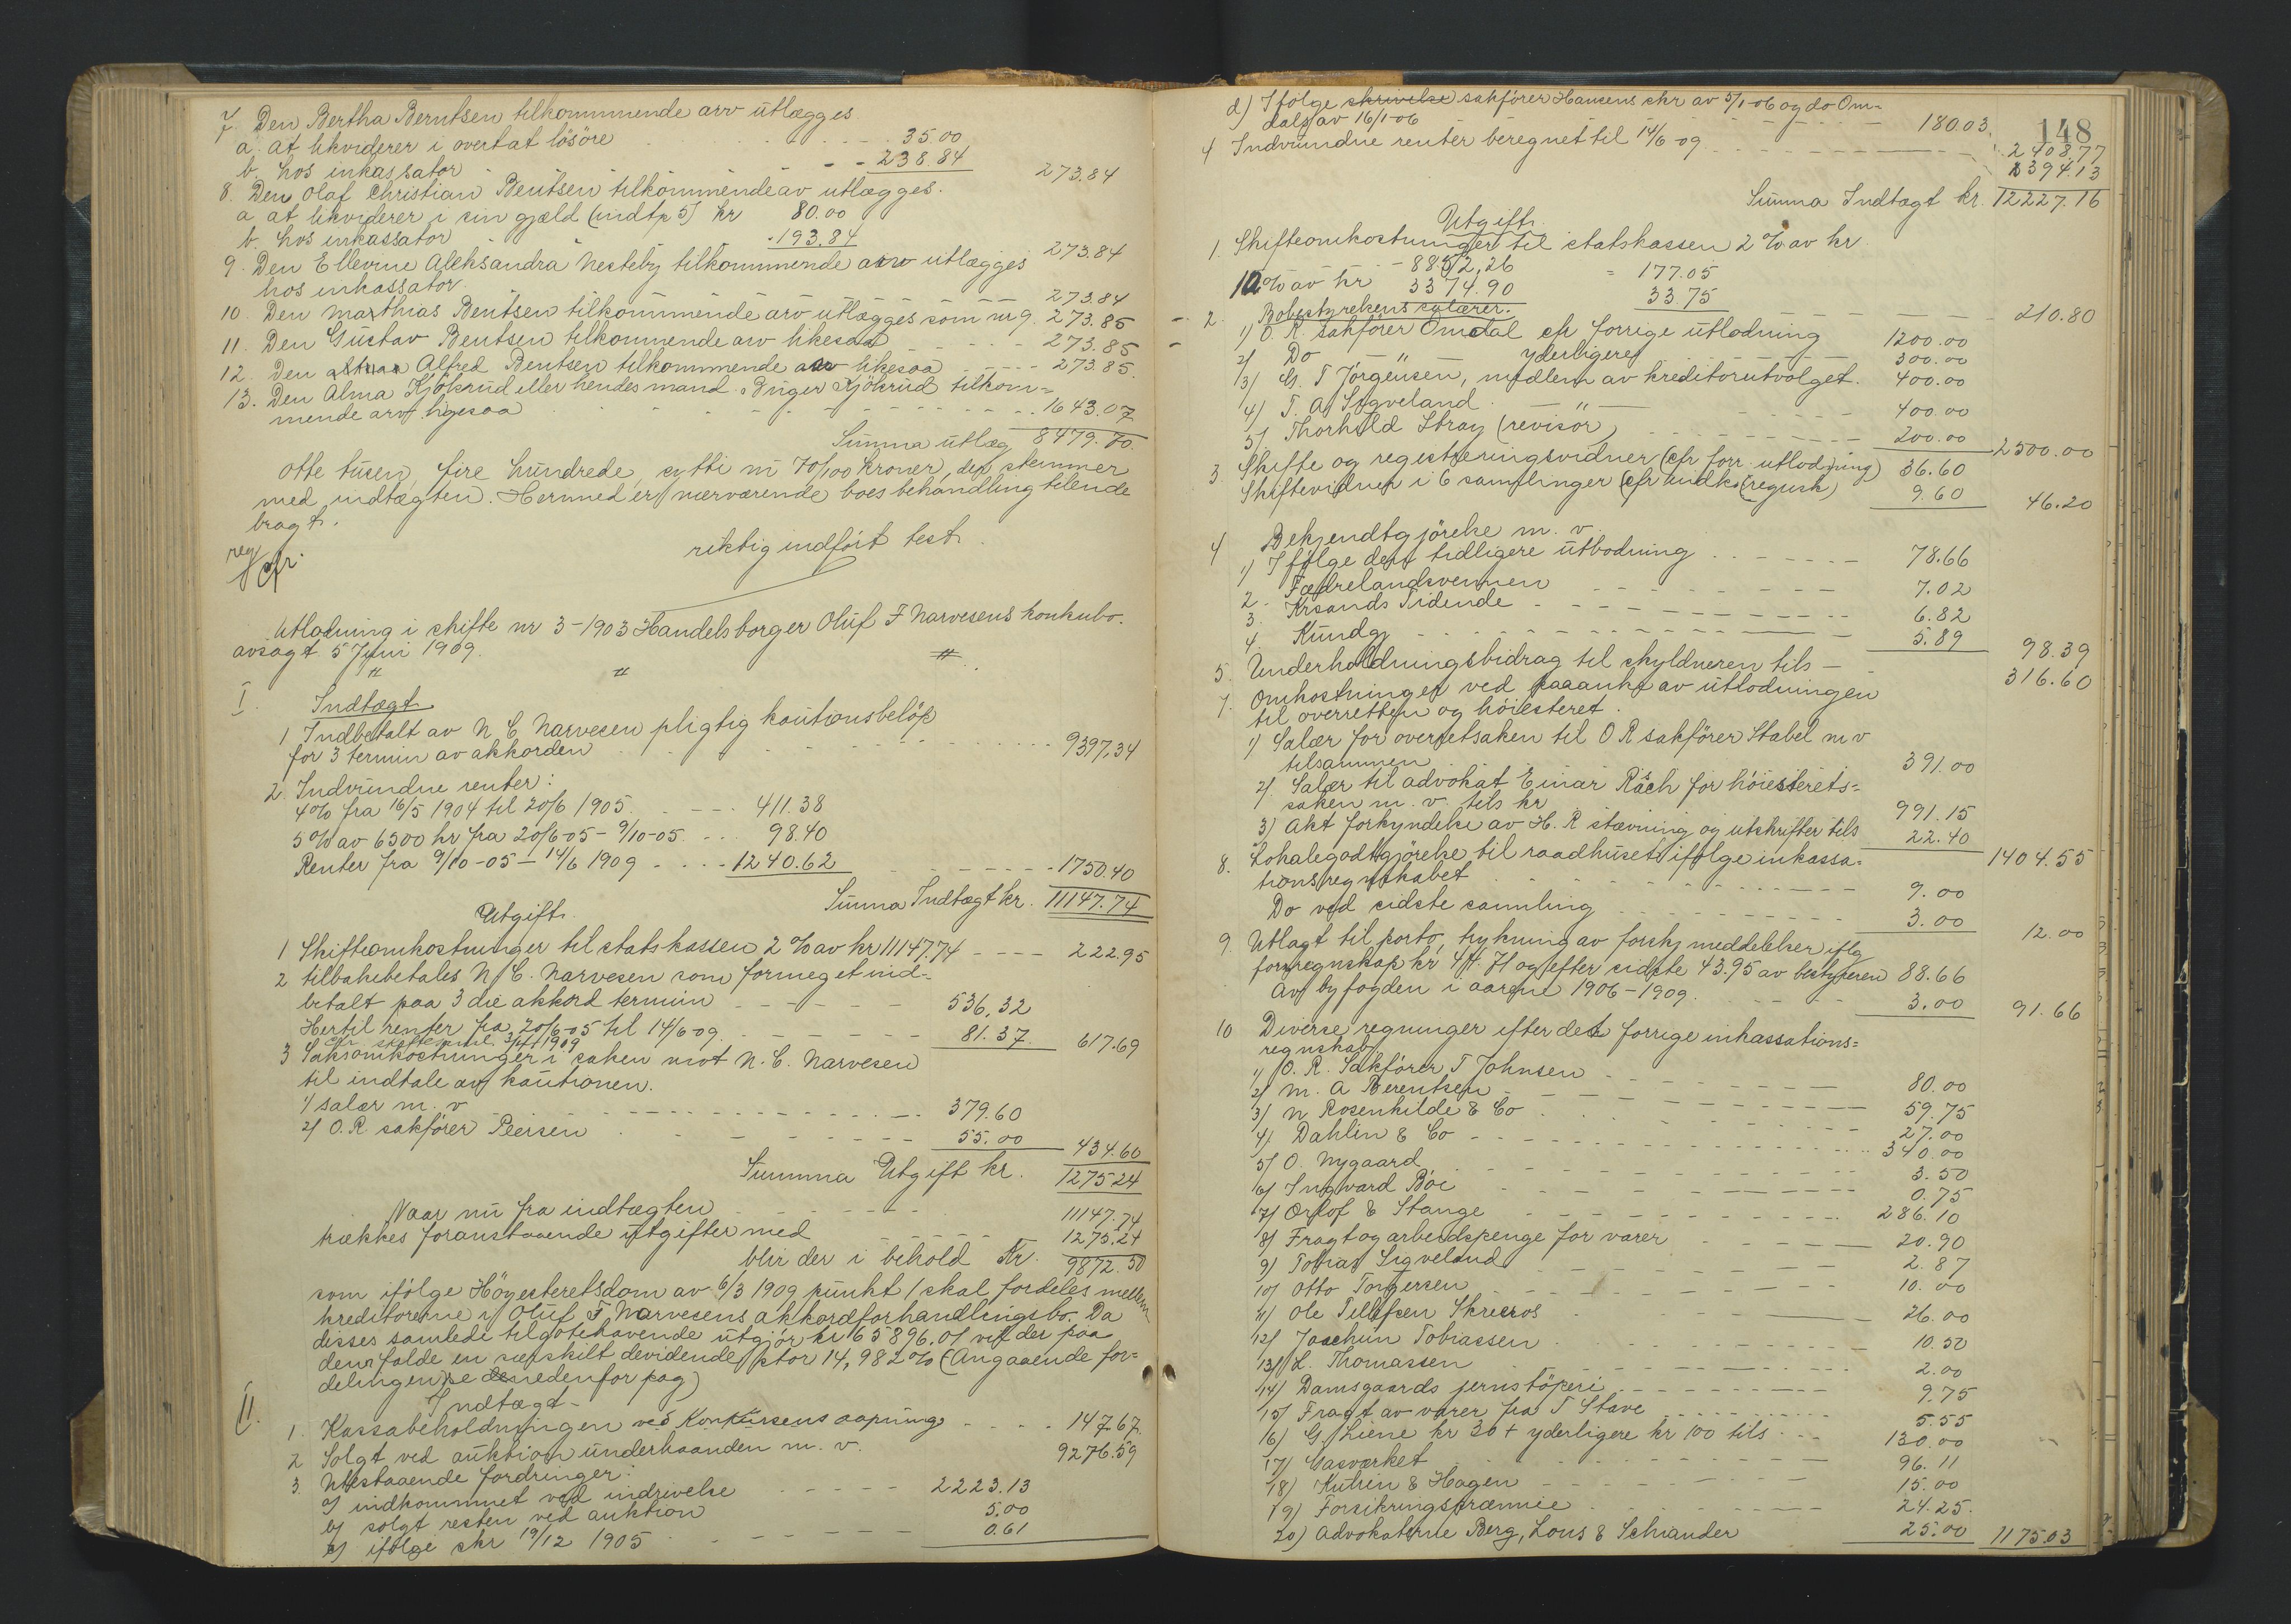 7. Den Bertha Berntsen tilkommende arv utlægges
a. at likviderer i overtat lösöre 35.00
b. hos inkassator 238.84 273.84
8. Den Olaf Christian Bentsen tilkommende av utlægges.
a at likviderer i sin gjæld (indtp 5) kr 80.00
b. hos inkassator 193.84 273.84
9. Den Ellevine Aleksandra Nesteby tilkommende arv utlægges
hos inkassator 273.84
10. Den Marthias Bentsen tilkommende arv utlægges som nr 9. 273.85
11. Den Gustav Bentsen tilkommende arv likesaa 273.85
12. Den Alfred Bentsen tilkommende arv likesaa 273.85.
13. Den Alma Kjökrud eller hendes mand Inger Kjökrud tilkom=
mende arv ligesaa 1643.07
Summa utlæg 8479.70.
otte tusen, fire hundrede, sytti ni 70/100 kroner, der stemmer
med indtægten. Hermed er nærværende boes behandling tilende
bragt.
riktig indfört test.
Utlodning i skifte nr 3-1903 Handelsborger Oluf F Narvesens konkubo.
avsagt 5 Juni 1909.
I. Indtægt
1 Indbetalt av N C Narvesen pligtig kautionsbelöp
for 3 termin av akkorden 9397.34
2. Indvundne renter:
4% fra 16/5 1904 til 20/6 1905. 411.38
5% av 6500 kr fra 20/6-05 - 9/10-05 98.40
Renter fra 9/10-05 - 14/6 1909 1240.62 1750.40
Summa Indtægt kr. 11147.74
Utgift.
1 Skifteomkostninger til statskassen 2% av kr 11147.74 222.95
2 tilbakebetales N. C. Narvesen som formeget ind=
betalt paa 3die akkord termin 536.32
Hertil renter fra 20/6-05 til 14/6-09 81.37 617.69
3 Saksomkostninger i saken mot N. C. Narvesen
til indtale av kautionen.
1) salær m. v 379.60
2) O.R. sakförer Peersen 55.00 434.60
Summa Utgift kr. 1275.24
Naar nu fra indtægten 11147.74
trækkes foranstaaende utgifter med 1275.24
blir der i behold Kr. 9872.50
som ifölge Höyesteretsdom av 6/3 1909 punkt 1 skal fordeles mellem
kreditorerne i Oluf F Narvesens akkordforhandlingsbo. Da
disses samlede tilgotehavende utgjör kr 65896.01 vil der paa
dem falde en særskilt devidende stor 14,982% (Angaaende for=
delingen se nedenfor pag)
II. Indtægt-
1. Kassabeholdningen ved Konkursens aapning 147.67.
2 Solgt ved auktion underhaanden m. v. 9276.59
3. Utestaaende fordringer:
a) indkommet ved indrivelse 2223.13
b) solgt resten ved auktion 5.00
c) ifölge skr 19/12 1905 0.61
148
d) Ifölge sakförer Hansens skr av 5/1-06 og do Om=
dals av 16/1-06 180.03. 2408.77
4 Indvundne renter beregnet til 14/6-09 394.13
Summa Indtægt kr. 12227.16
Utgift.
1. Skifteomkostninger til statskassen 2% av kr
8852,26 = 177.05
1% av kr 3374.90 33.75 210.80
2. Bobestyrelsens salærer.
1) O. R. sakförer Omdal cfr forrige utlodning 1200.00
2) Do " yderligere 300.00
3) G. T Jörgensen, medlem av kreditorutvalget. 400.00
4) T. A. Sigveland " 400.00
5) Thorhild Stray (revisor) 200.00 2500.00
3. Skifte og registreringsvidner (cfr forr. utlodning) 36.60
Skiftevidner i 6 samlinger (cfr indk. regnsk) 9.60 46.20
4 Bekjendtgjörelse m. v.
1) Ifölge den tidligere utlodning 78.66
2. Fædrelandsvennen 7.02
3. Krsands Tidende 6.82
4. Kundgj 5.89 98.39
5. Underholdningsbidrag til skyldneren tils 316.60
7. Omkostninger ved paaanke av utlodningen
til overretten og höiesteret.
1) Salær for overretsaken til O R sakförer Stabel m v
tilsammen 391.00
2) Salær til advokat Einar Räch for höiesterets=
saken m. v. tils kr 991.15
3) Akt forkyndelse av H. R stævning og utskrifter tils 22.40 1404.55
8. Lokalegodtgjörelse til raadhuset ifölge inkassa=
tionsregnskabet 9.00
Do ved sidste samling 3.00 12.00
9. Utlagt til porto, trykning av forskj meddelelser iflg
forr regnskap kr 44.71 og efter sidste 43.95 av bestyreren 88.66
Av byfogden i aarene 1906-1909. 3.00 91.66
10 Diverse regninger efter det forrige inkassations=
regnskab
1) O. R. Sakförer T Johnsen 80.00
2) M. A Berentsen 59.75
3) N Rosenkilde & Co 27.00
4) Dahlin & Co 340.00
5) O. Nygaard 3.50
6) Ingvard Böe 0.75
7) Orlof & Stange 286.10
8) Fragt og arbeidspenge for varer 20.90
9) Tobias Sigveland 2.87
10) Otto Torgersen 10.00
11) Ole Tellefsen Skreros 26.00
12) Joachim Tobiassen 10.50
13) L. Thomassen 2.00
14) Damsgaards jernstöperi 9.75
15) Fragt av varer fra T Stave 5.55
16) G. Liene kr 30 + yderligere kr 100 tils 130.00
17) Gasværket 96.11
18) Kuhin & Hagen 15.00
19) Forsikringspræmie 24.25.
20) Advokaterne Berg, Lous & Schiander 25.00 1175.03